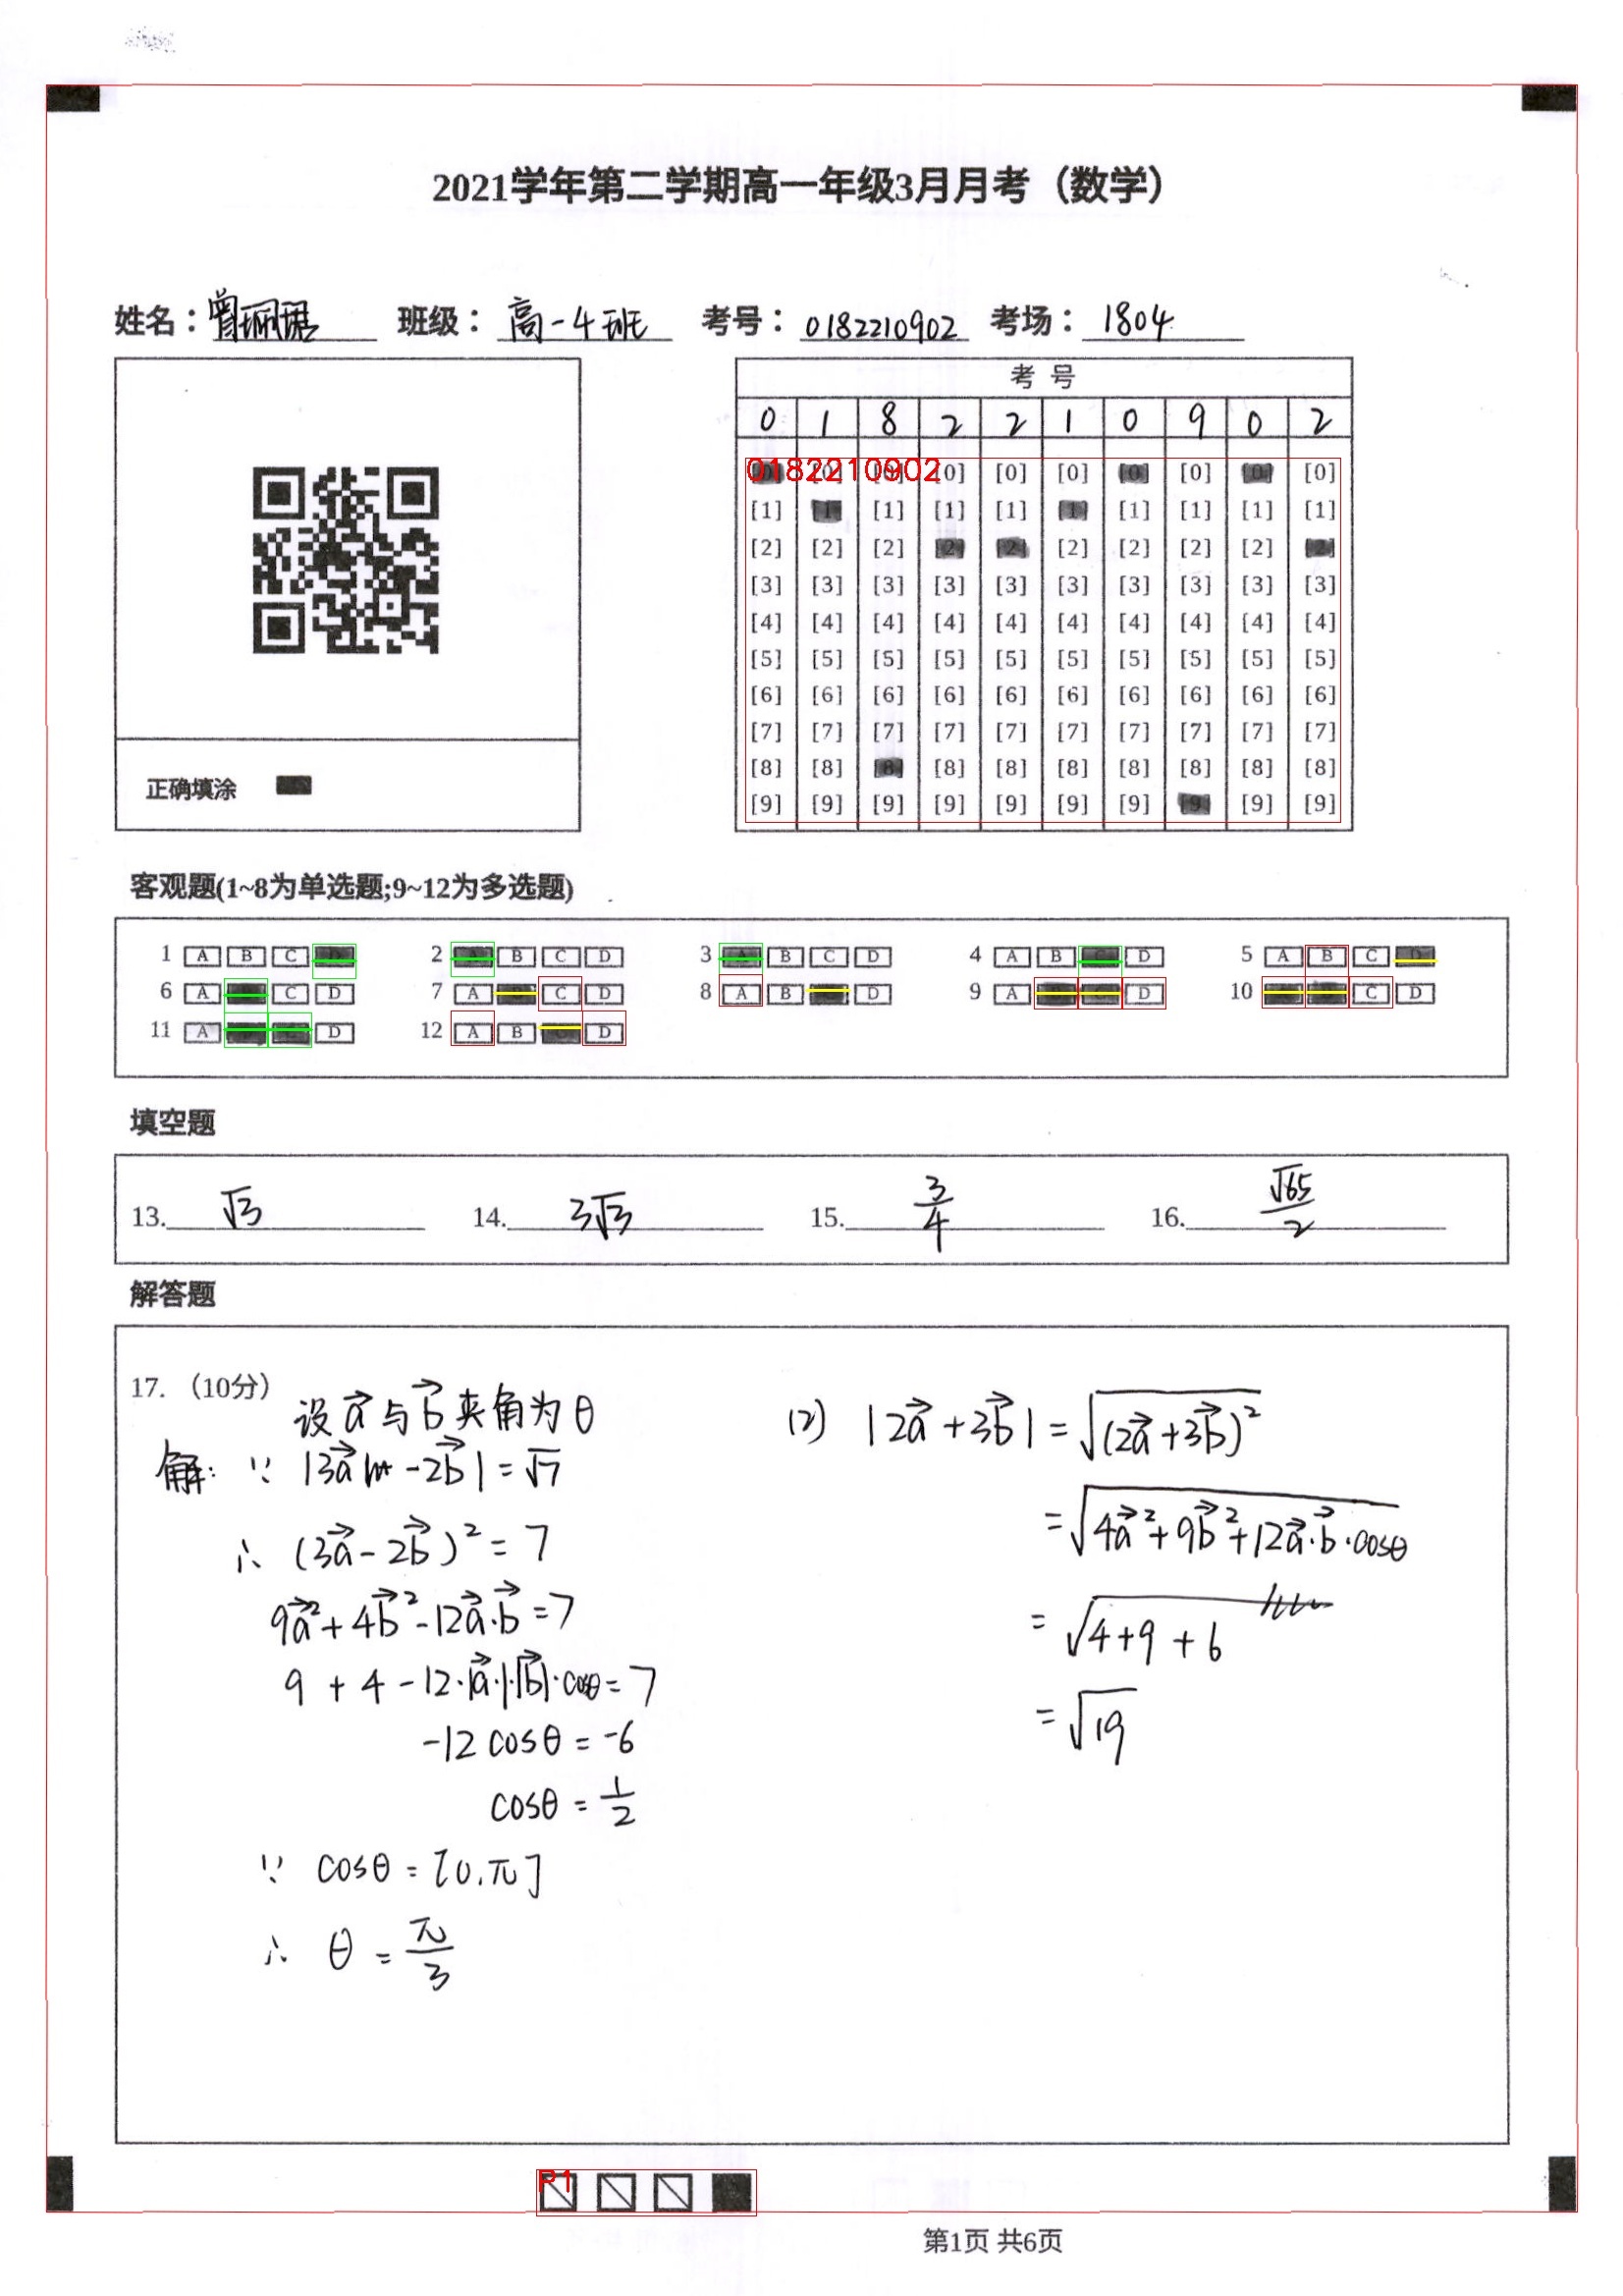 2021学年第二学期高一年级3月月考（数学）
姓名： 班级：高一4班 考号：0182210902 考场：1804
考 号
0 1 8 2 2 1 0 9 0 2
0182210902
[0] [0] [0] [0] [0] [0] [0] [0] [0] [0]
[1] [1] [1] [1] [1] [1] [1] [1] [1] [1]
[2] [2] [2] [2] [2] [2] [2] [2] [2] [2]
[3] [3] [3] [3] [3] [3] [3] [3] [3] [3]
[4] [4] [4] [4] [4] [4] [4] [4] [4] [4]
[5] [5] [5] [5] [5] [5] [5] [5] [5] [5]
[6] [6] [6] [6] [6] [6] [6] [6] [6] [6]
[7] [7] [7] [7] [7] [7] [7] [7] [7] [7]
[8] [8] [8] [8] [8] [8] [8] [8] [8] [8]
[9] [9] [9] [9] [9] [9] [9] [9] [9] [9]
正确填涂
客观题(1~8为单选题;9~12为多选题)
1 A B C D 2 A B C D 3 A B C D 4 A B C D 5 A B C D
6 A B C D 7 A B C D 8 A B C D 9 A B C D 10 A B C D
11 A B C D 12 A B C D
填空题
13. √3 14. 3√3 15. 3/4 16. √65/2
解答题
17.（10分）
设a⃗与b⃗夹角为θ
解: ∵ |3a⃗ - 2b⃗| = √7
∴ (3a⃗ - 2b⃗)² = 7
9a⃗² + 4b⃗² - 12a⃗·b⃗ = 7
9 + 4 - 12·|a⃗|·|b⃗|·cosθ = 7
-12cosθ = -6
cosθ = 1/2
∵ cosθ = [0.π]
∴ θ = π/3
(2) |2a⃗ + 3b⃗| = √(2a⃗ + 3b⃗)²
= √4a⃗² + 9b⃗² + 12a⃗·b⃗·cosθ
= √4+9+6
= √19
P1
第1页 共6页